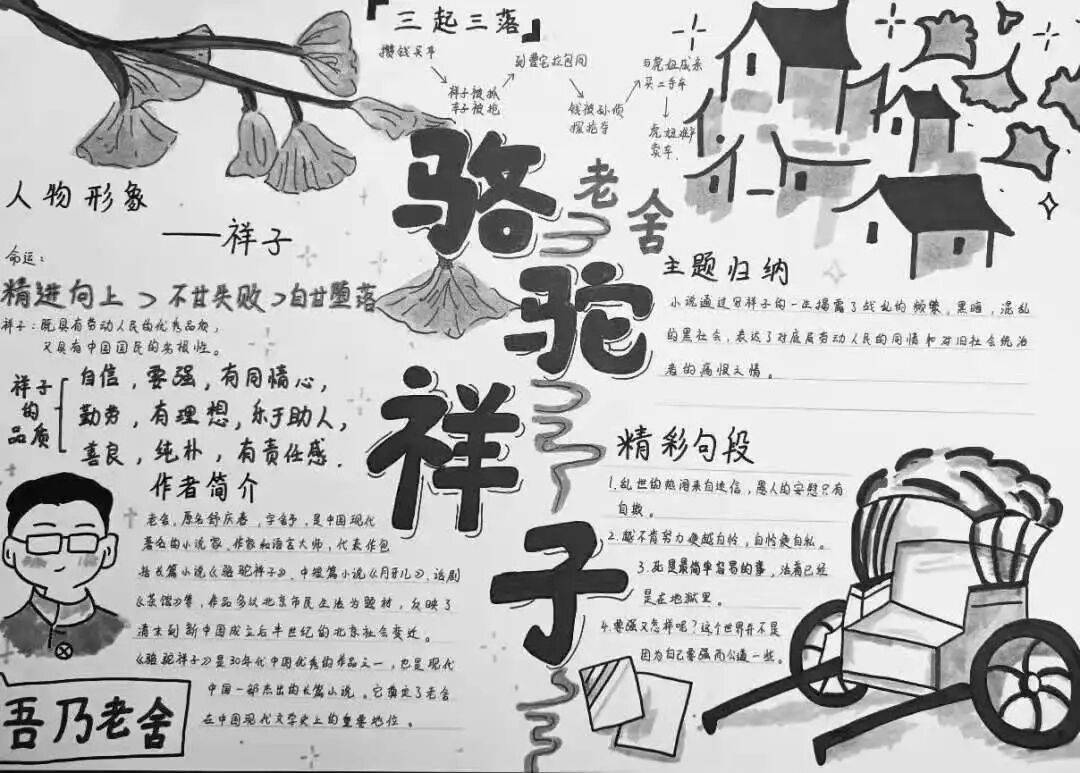 三起三落
攒钱买车
祥子被抓
车子被抢
到曹宅拉包月
钱被孙侦
探抢夺
与虎妞成亲
买二手车
虎妞难产
卖车
骆驼祥子
老舍
人物形象
——祥子
命运：
精进向上>不甘失败>自甘堕落
祥子：既具有劳动人民的优秀品质，
又具有中国国民的劣根性。
祥子的品质
自信，要强，有同情心，
勤劳，有理想，乐于助人，
善良，纯朴，有责任感.
作者简介
老舍，原名舒庆春，字舍予，是中国现代
著名的小说家、作家和语言大师，代表作包
括长篇小说《骆驼祥子》、中短篇小说《月牙儿》、话剧
《茶馆》等，作品多以北京市民生活为题材，反映了
清末到新中国成立后半世纪的北京社会变迁。
《骆驼祥子》是30年代中国优秀的作品之一，也是现代
中国一部杰出的长篇小说。它奠定了老舍
在中国现代文学史上的重要地位。
吾乃老舍
主题归纳
小说通过写祥子的一生揭露了战乱的频繁，黑暗，混乱
的黑社会，表达了对底层劳动人民的同情和对旧社会统治
者的痛恨之情。
精彩句段
1.乱世的热闹来自迷信，愚人的安慰只有
自欺。
2.越不肯努力便越自怜，自怜便自私。
3.死是最简单容易的事，活着已经
是在地狱里。
4.要强又怎样呢？这个世界并不是
因为自己要强而公道一些。